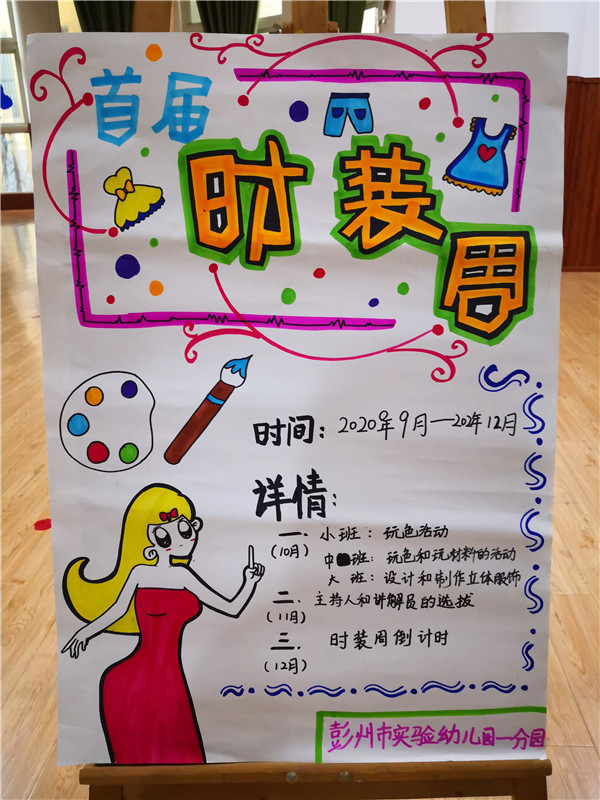 首届
时装周
时间：2020年9月—202年12月
详情：
一、小班：玩色活动
（10月） 中班：玩色和玩材料的活动
大班：设计和制作立体服饰
二、主持人和讲解员的选拔
（11月）
三、时装周倒计时
（12月）
彭州市实验幼儿园一分园